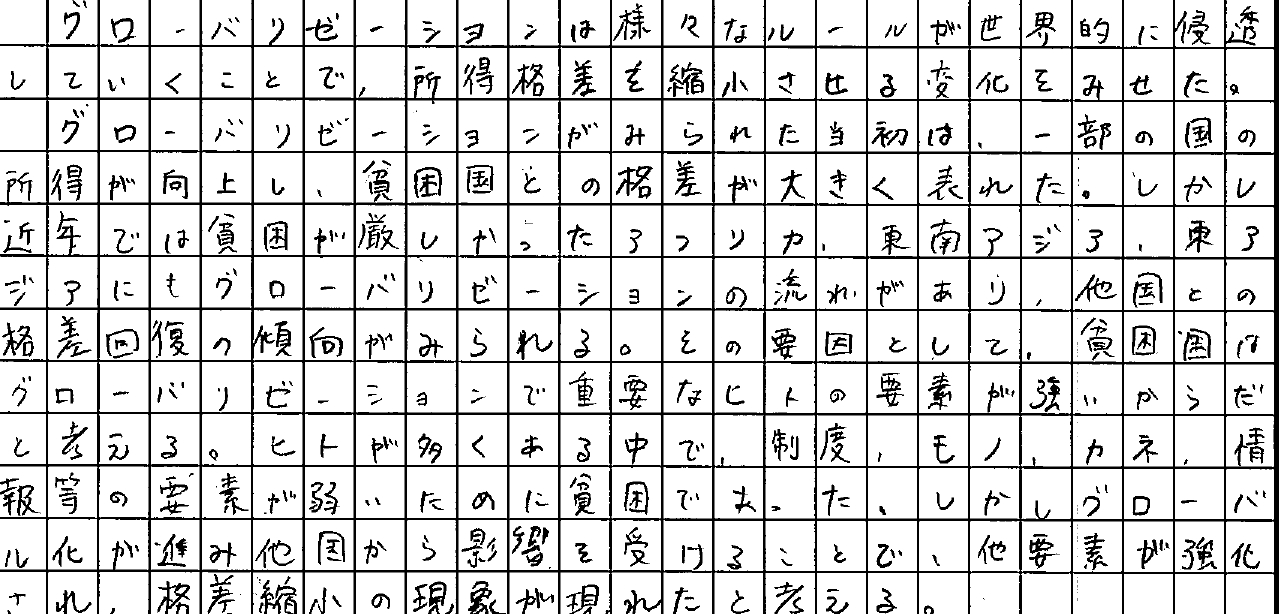 グローバリゼーションは様々なルールが世界的に侵透
していくことで,所得格差を縮小させる変化をみせた。
グローバリゼーションがみられた当初は、一部の国の
所得が向上し、貧困国との格差が大きく表れた。しかし
近年では貧困が厳しかったアフリカ、東南アジア、東ア
ジアにもグローバリゼーションの流れがあり、他国との
格差回復の傾向がみられる。その要因として、貧困国は
グローバリゼーションで重要なヒトの要素が強いからだ
と考える。ヒトが多くある中で、制度、モノ、カネ、情
報等の要素が弱いために貧困であった。しかしグローバ
ル化が進み他国から影響を受けることで、他要素が強化
され、格差縮小の現象が現れたと考える。